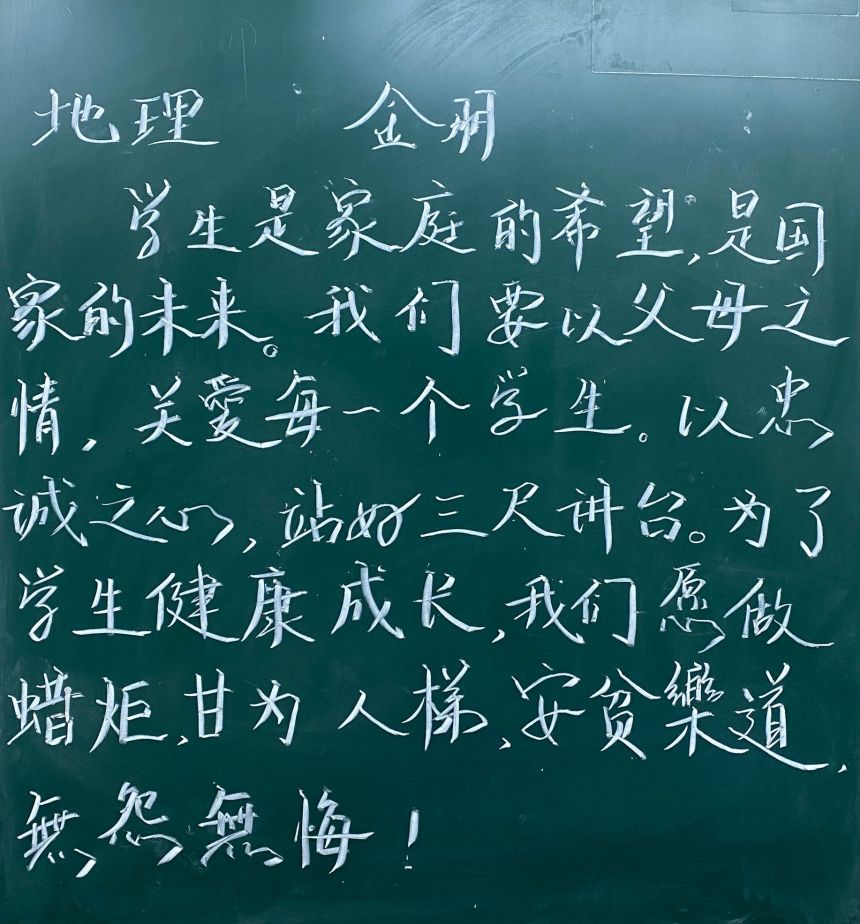 地理 金明
学生是家庭的希望,是国
家的未来。我们要以父母之
情,关愛每一个学生。以忠
诚之心,站好三尺讲台。为了
学生健康成长,我们愿做
蜡炬,甘为人梯,安贫樂道,
無怨無悔!